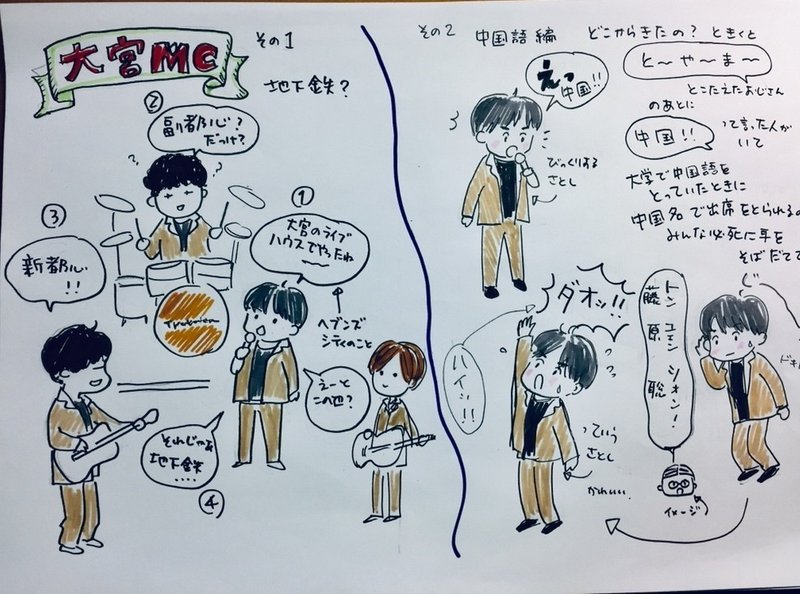 大宮MC
その1
地下鉄?
②
副都心?
だっけ?
①
大宮のライブ
ハウスでやったね
〜〜
ヘブンズ
シティのこと
③
新都心
!!
えーと
この辺?
それじゃあ
地下鉄
....
④
その2 中国語編
どこからきたの? ときくと
と〜や〜ま〜
とこたえたおじさん
のあとに
中国!!
って言った人が
いて
大学で中国語を
とっていたときに
中国名で出席をとられるの
みんな必死に耳を
そばだてて
えっ
中国!!
びっくりする
さとし
ダオッ!!
ハイッ!!
っていう
さとし
かわいい
藤原聡
イメージ